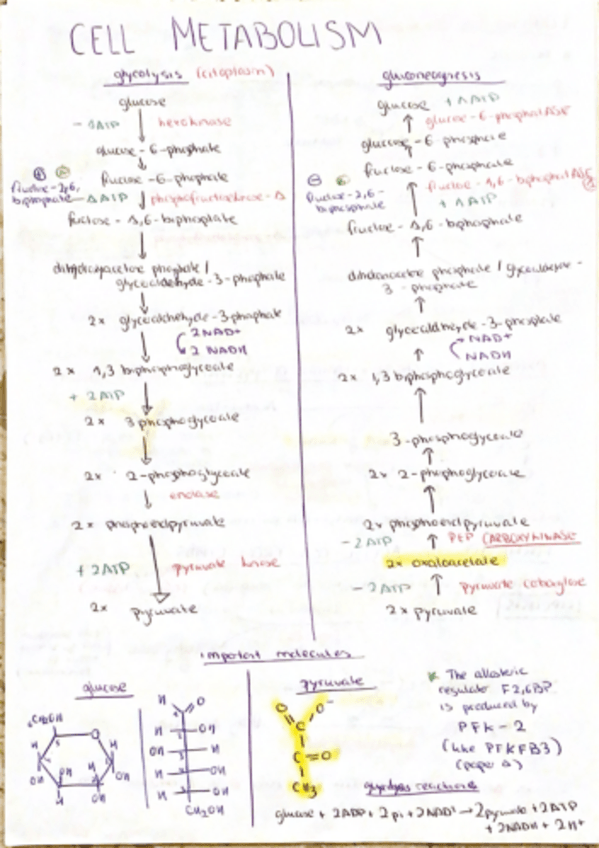 CELL METABOLISM
glycolysis (citoplasm)
glucose
- 1ATP
hexokinase
glucose-6-phosphate
fructose-6-phosphate
fructose-2,6,
biphosphate
- 1ATP
phosphofructokinase-1
fructose-1,6-biphosphate
dihydroxyacetone phosphate /
glyceraldehyde-3-phosphate
2x glyceraldehyde-3-phosphate
2 NAD+
2 NADH
2x 1,3 biphosphoglycerate
+ 2ATP
2x 3 phosphoglycerate
2x 2-phosphoglycerate
enolase
2x phosphoenolpyruvate
+ 2ATP
pyruvate kinase
2x pyruvate
gluconeogenesis
glucose + 1ATP
glucose-6-phosphatase
glucose-6-phosphate
fructose-6-phosphate
fructose-2,6-
biphosphate
fructose-1,6-biphosphatase
+ 1ATP
fructose-1,6-biphosphate
phosphate / glyceraldehyde-
3-phosphate
2x glyceraldehyde-3-phosphate
NAD+
NADH
2x 1,3 biphosphoglycerate
3-phosphoglycerate
2x 2-phosphoglycerate
2x phosphoenolpyruvate
- 2ATP
PEP CARBOXYKINASE
2x oxaloacetate
- 2ATP
pyruvate carboxylase
2x pyruvate
important molecules
glucose
CH2OH
O
H
H
H
OH
OH
OH
H
O
H
OH
OH
H
H
OH
H
OH
CH2OH
pyruvate
O
O-
C
C=O
CH3
* The allosteric
regulator F2,6BP
is produced by
PFK-2
(like PFKFB3)
(paper 1)
glycolysis reactions
glucose + 2ADP + 2pi + 2NAD+ → 2pyruvate + 2ATP
+ 2NADH + 2H+